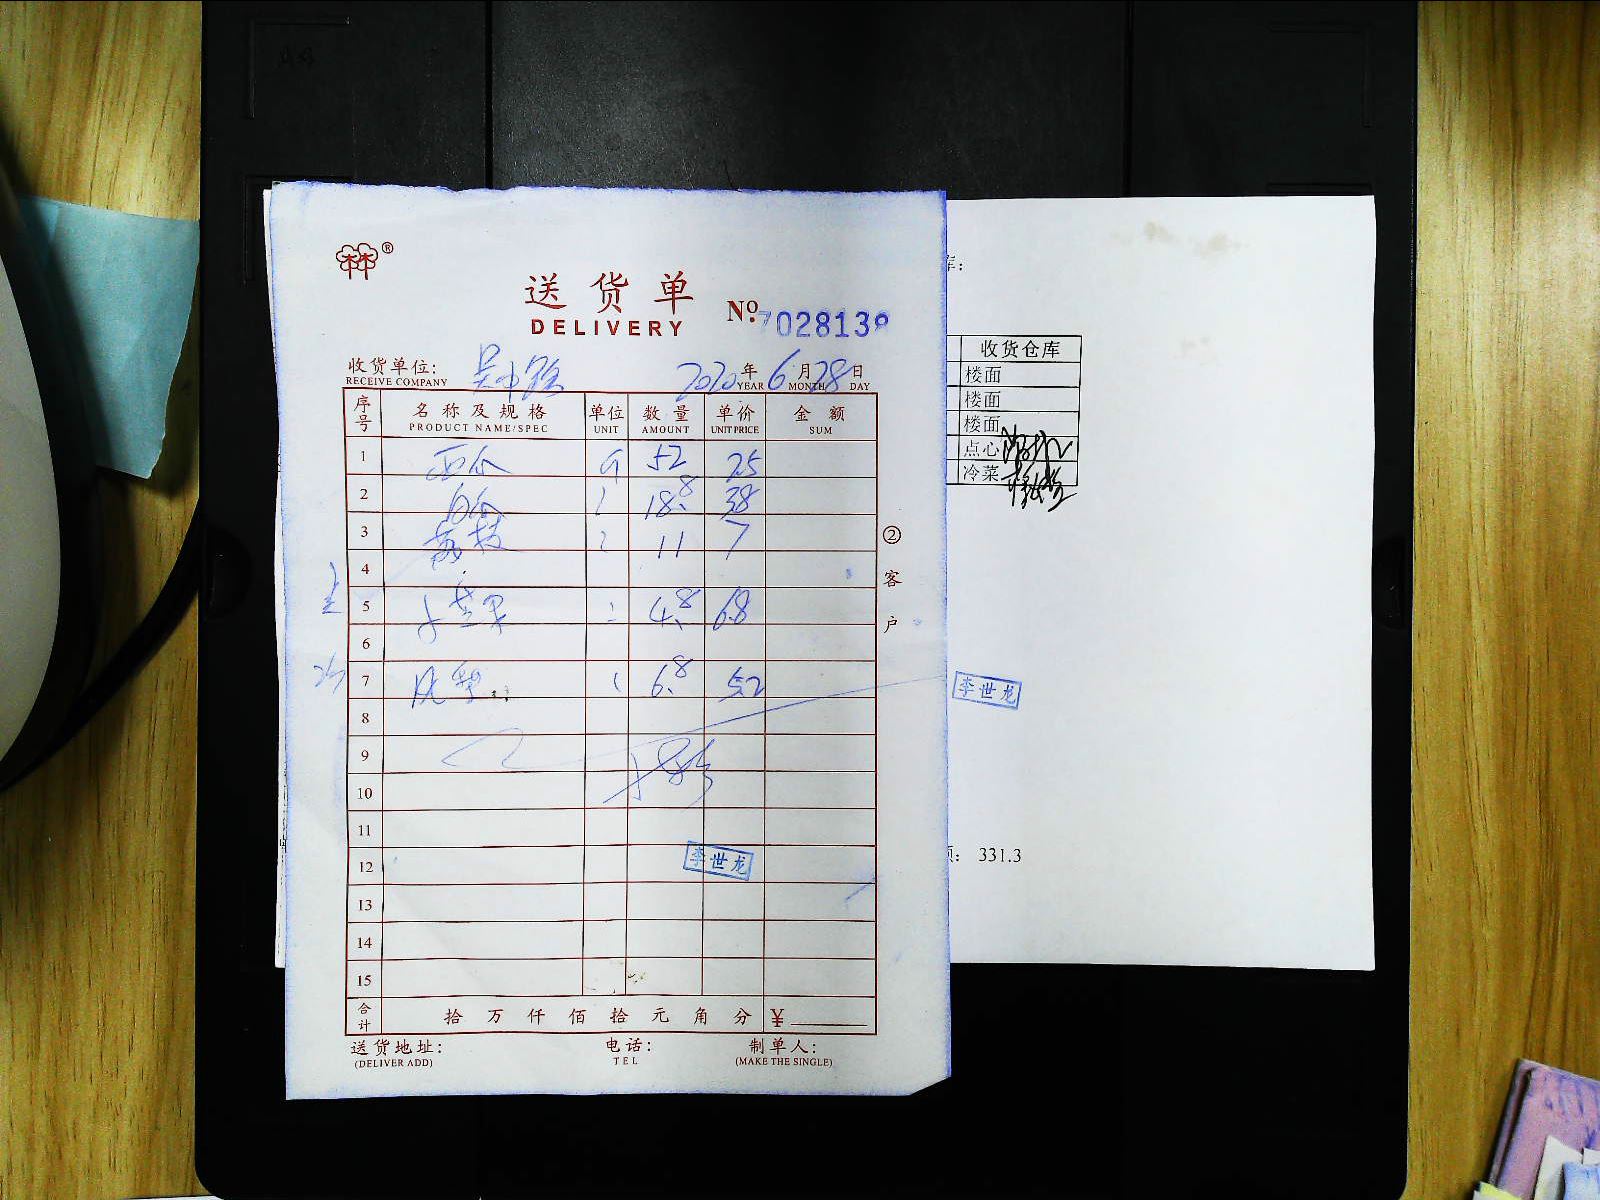 ®
送货单
DELIVERY
№ 7028138
收货单位:
RECEIVE COMPANY
2020年6月28日
YEAR MONTH DAY
序号 名称及规格 单位 数量 单价 金额
PRODUCT NAME/SPEC UNIT AMOUNT UNIT PRICE SUM
1 西瓜 52 2.5
2 白瓜 18.8 3.8
3 荔枝 11 7
4
5 小芒果 4.8 6.8
6
7 6.8 5.2
8
9
10
11
12 李世龙
13
14
15
合计 拾 万 仟 佰 拾 元 角 分 ¥
送货地址: 电话: 制单人:
(DELIVER ADD) TEL (MAKE THE SINGLE)
② 客户
库:
收货仓库
楼面
楼面
楼面
点心
冷菜
李世龙
331.3